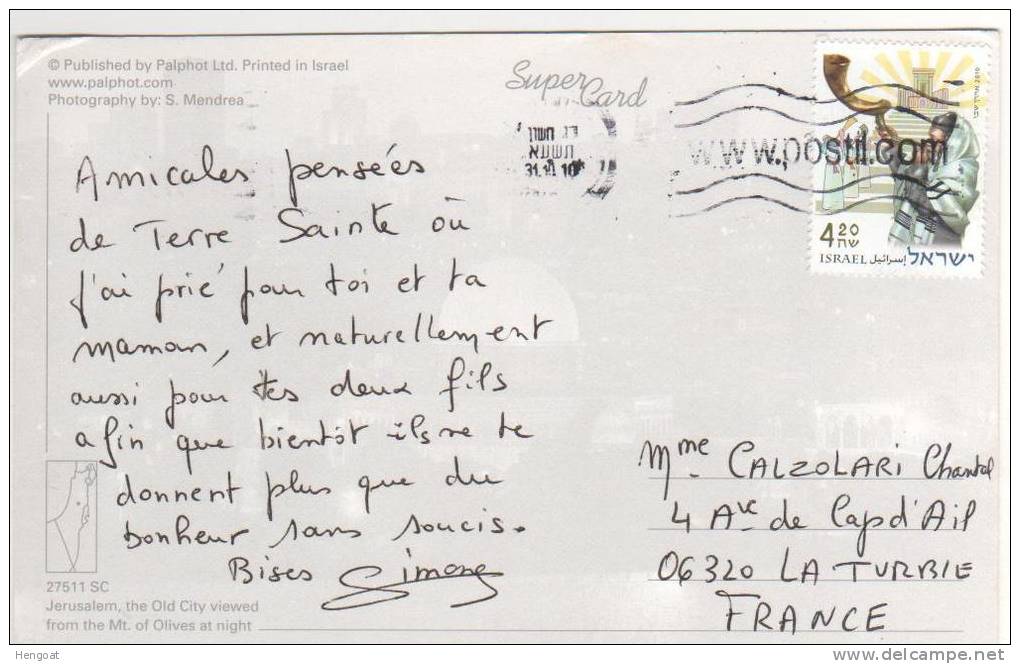 © Published by Palphot Ltd. Printed in Israel
www.palphot.com
Photography by: S. Mendrea
Super Card
חשון
תשעא
31.10 10
www.postil.com
4 20
שח
ISRAEL اسرائيل ישראל
Amicales pensées
de Terre Sainte où
j'ai prié pour toi et ta
maman, et naturellement
aussi pour tes deux fils
afin que bientôt ils ne te
donnent plus que du
bonheur sans soucis.
Bises Simone
Mme CALZOLARI Chantal
4 Ave de Cap d'Ail
06320 LA TURBIE
FRANCE
27511 SC
Jerusalem, the Old City viewed
from the Mt. of Olives at night
Hengoat
delcampe.net